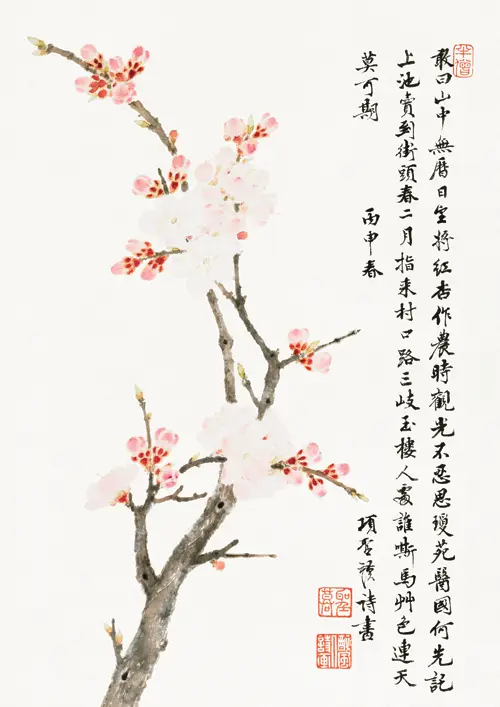 半僧
敢曰山中無曆日空將紅杏作農時觀光不忍思瓊苑醫國何先記
上池賣到街頭春二月指來村口路三岐玉樓人處誰嘶馬艸色連天
莫可期 丙申春 項 詩書